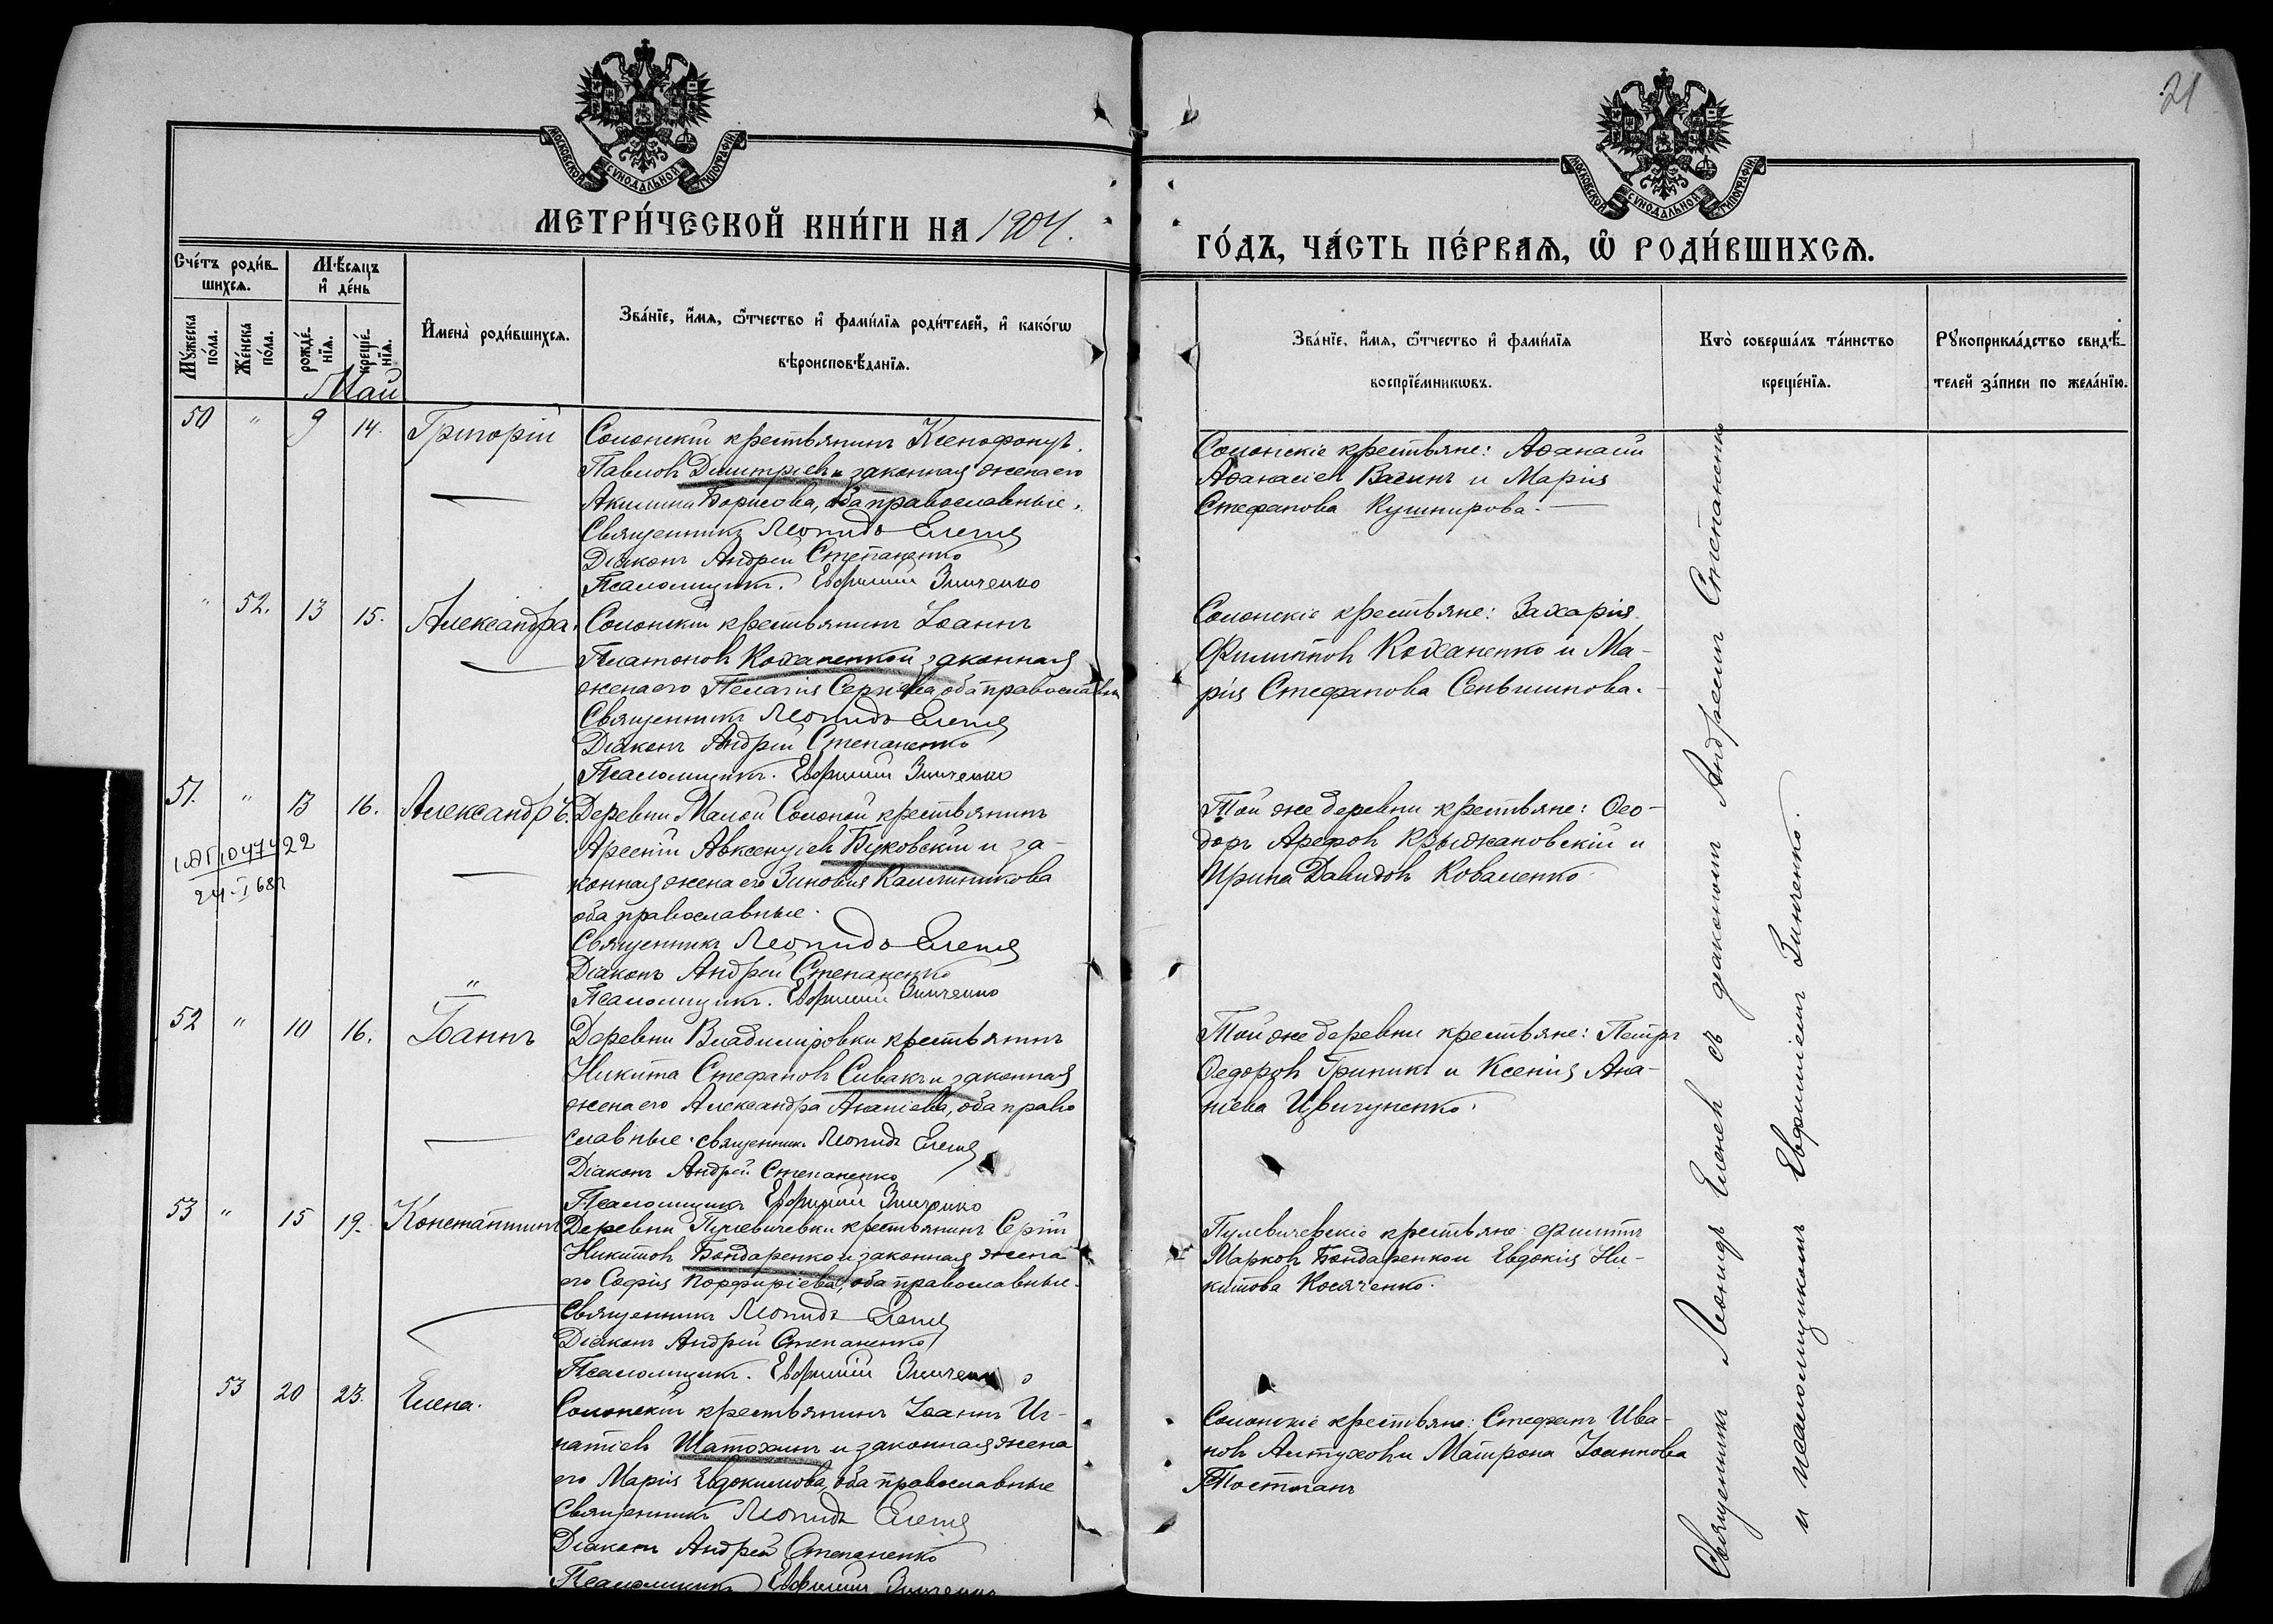 21
МОСКОВСКОЙ СѴНОДАЛЬНОЙ ТИПОГРАФІИ
МОСКОВСКОЙ СѴНОДАЛЬНОЙ ТИПОГРАФІИ
МЕТРИ́ЧЕСКОЙ КНИ́ГИ НА 1904.
ГО́ДЪ, ЧА́СТЬ ПЕ́РВАЯ, Ѡ҆ РОДИ́ВШИХСЯ.
Сче́тъ роди́в-
шихся.
Мѣ́сяцъ
и҆ де́нь
Му́жеска
по́ла.
Же́нска
по́ла.
рожде́-
нїя.
креще́-
нїя.
И҆мена̀ роди́вшихся.
Зва́нїе, и҆́мя, ѻ҆́тчество и҆ фами́лїя роди́телей, и҆ како́гѡ
вѣроисповѣ́данїя.
Зва́нїе, и҆́мя, ѻ҆́тчество и҆ фами́лїя
воспрїе́мникѡвъ.
Кто̀ соверша́лъ та́инство
креще́нїя.
Рꙋкоприкла́дство свидѣ́-
телей за́писи по жела́нїю.
Май
50 " 9 14. Григорій
Солонскій крестьянинъ Ксенофонтъ
Павловъ Димитріевъ и законная жена его
Акилина Борисова, оба православные.
Священникъ Леонидъ Еленев
Діаконъ Андрей Степаненко
Псаломщикъ. Евфимій Зинченко
Солонскіе крестьяне: Аѳанасій
Аѳанасіев Васинъ и Марія
Стефанова Кушнирова.
" 52. 13 15. Александра.
Солонскій крестьянинъ Іоаннъ
Платоновъ Коханенко и законная
жена его Пелагія Сергіева, оба православны
Священникъ Леонидъ Еленев
Діаконъ Андрей Степаненко
Псаломщикъ. Евфимій Зинченко
Солонскіе крестьяне: Захарія
Филипповъ Коханенко и Ма-
рія Стефанова Сеньшинова.
51. " 13 16. Александръ.
1АП1047422
24-I 68г
Деревни Малой Солоной крестьянинъ
Арсеній Авксентіевъ Буковскій и за-
конная жена его Зиновія Каллиникова
оба православные.
Священникъ Леонидъ Еленев
Діаконъ Андрей Степаненко
Псаломщикъ. Евфимій Зинченко
Той же деревни крестьяне: Ѳео-
доръ Арефов Крыжановскій и
Ирина Давидов Коваленко
52 " 10 16. Іоаннъ
Деревни Владиміровки крестьянинъ
Никита Стефановъ Сивакъ и законная
жена его Александра Ананіева, оба право
славные. Священникъ Леонидъ Еленев
Діаконъ Андрей Степаненко
Псаломщикъ Евфимій Зинченко
Той же деревни крестьяне: Петръ
Ѳедоровъ Гриникъ и Ксенія Ана-
ніева Цвигуненко.
53 " 15 19. Константинъ
Деревни Пулевичевки крестьянинъ Сергій
Никитовъ Бондаренко и законная жена
его Софія Порфиріева, оба православные.
Священникъ Леонидъ Еленев
Діаконъ Андрей Степаненко
Псаломщикъ. Евфимій Зинченко
Пулевичевскіе крестьяне Филиппъ
Марковъ Бондаренко и Евдокія Ни-
китова Косяченко.
53 20 23. Елена.
Солонскій крестьянинъ Іоаннъ Иг-
натіевъ Шатохинъ и законная жена
его Марія Евдокимова, оба православные
Священникъ Леонидъ Еленев
Діаконъ Андрей Степаненко
Псаломщикъ Евфимій Зинченко
Солонскіе крестьяне: Стефанъ Ива-
новъ Алтуховъ и Матрона Іоаннова
Священникъ Леонидъ Еленевъ съ діакономъ Андреемъ Степаненко
и псаломщикомъ Евфиміемъ Зинченко.